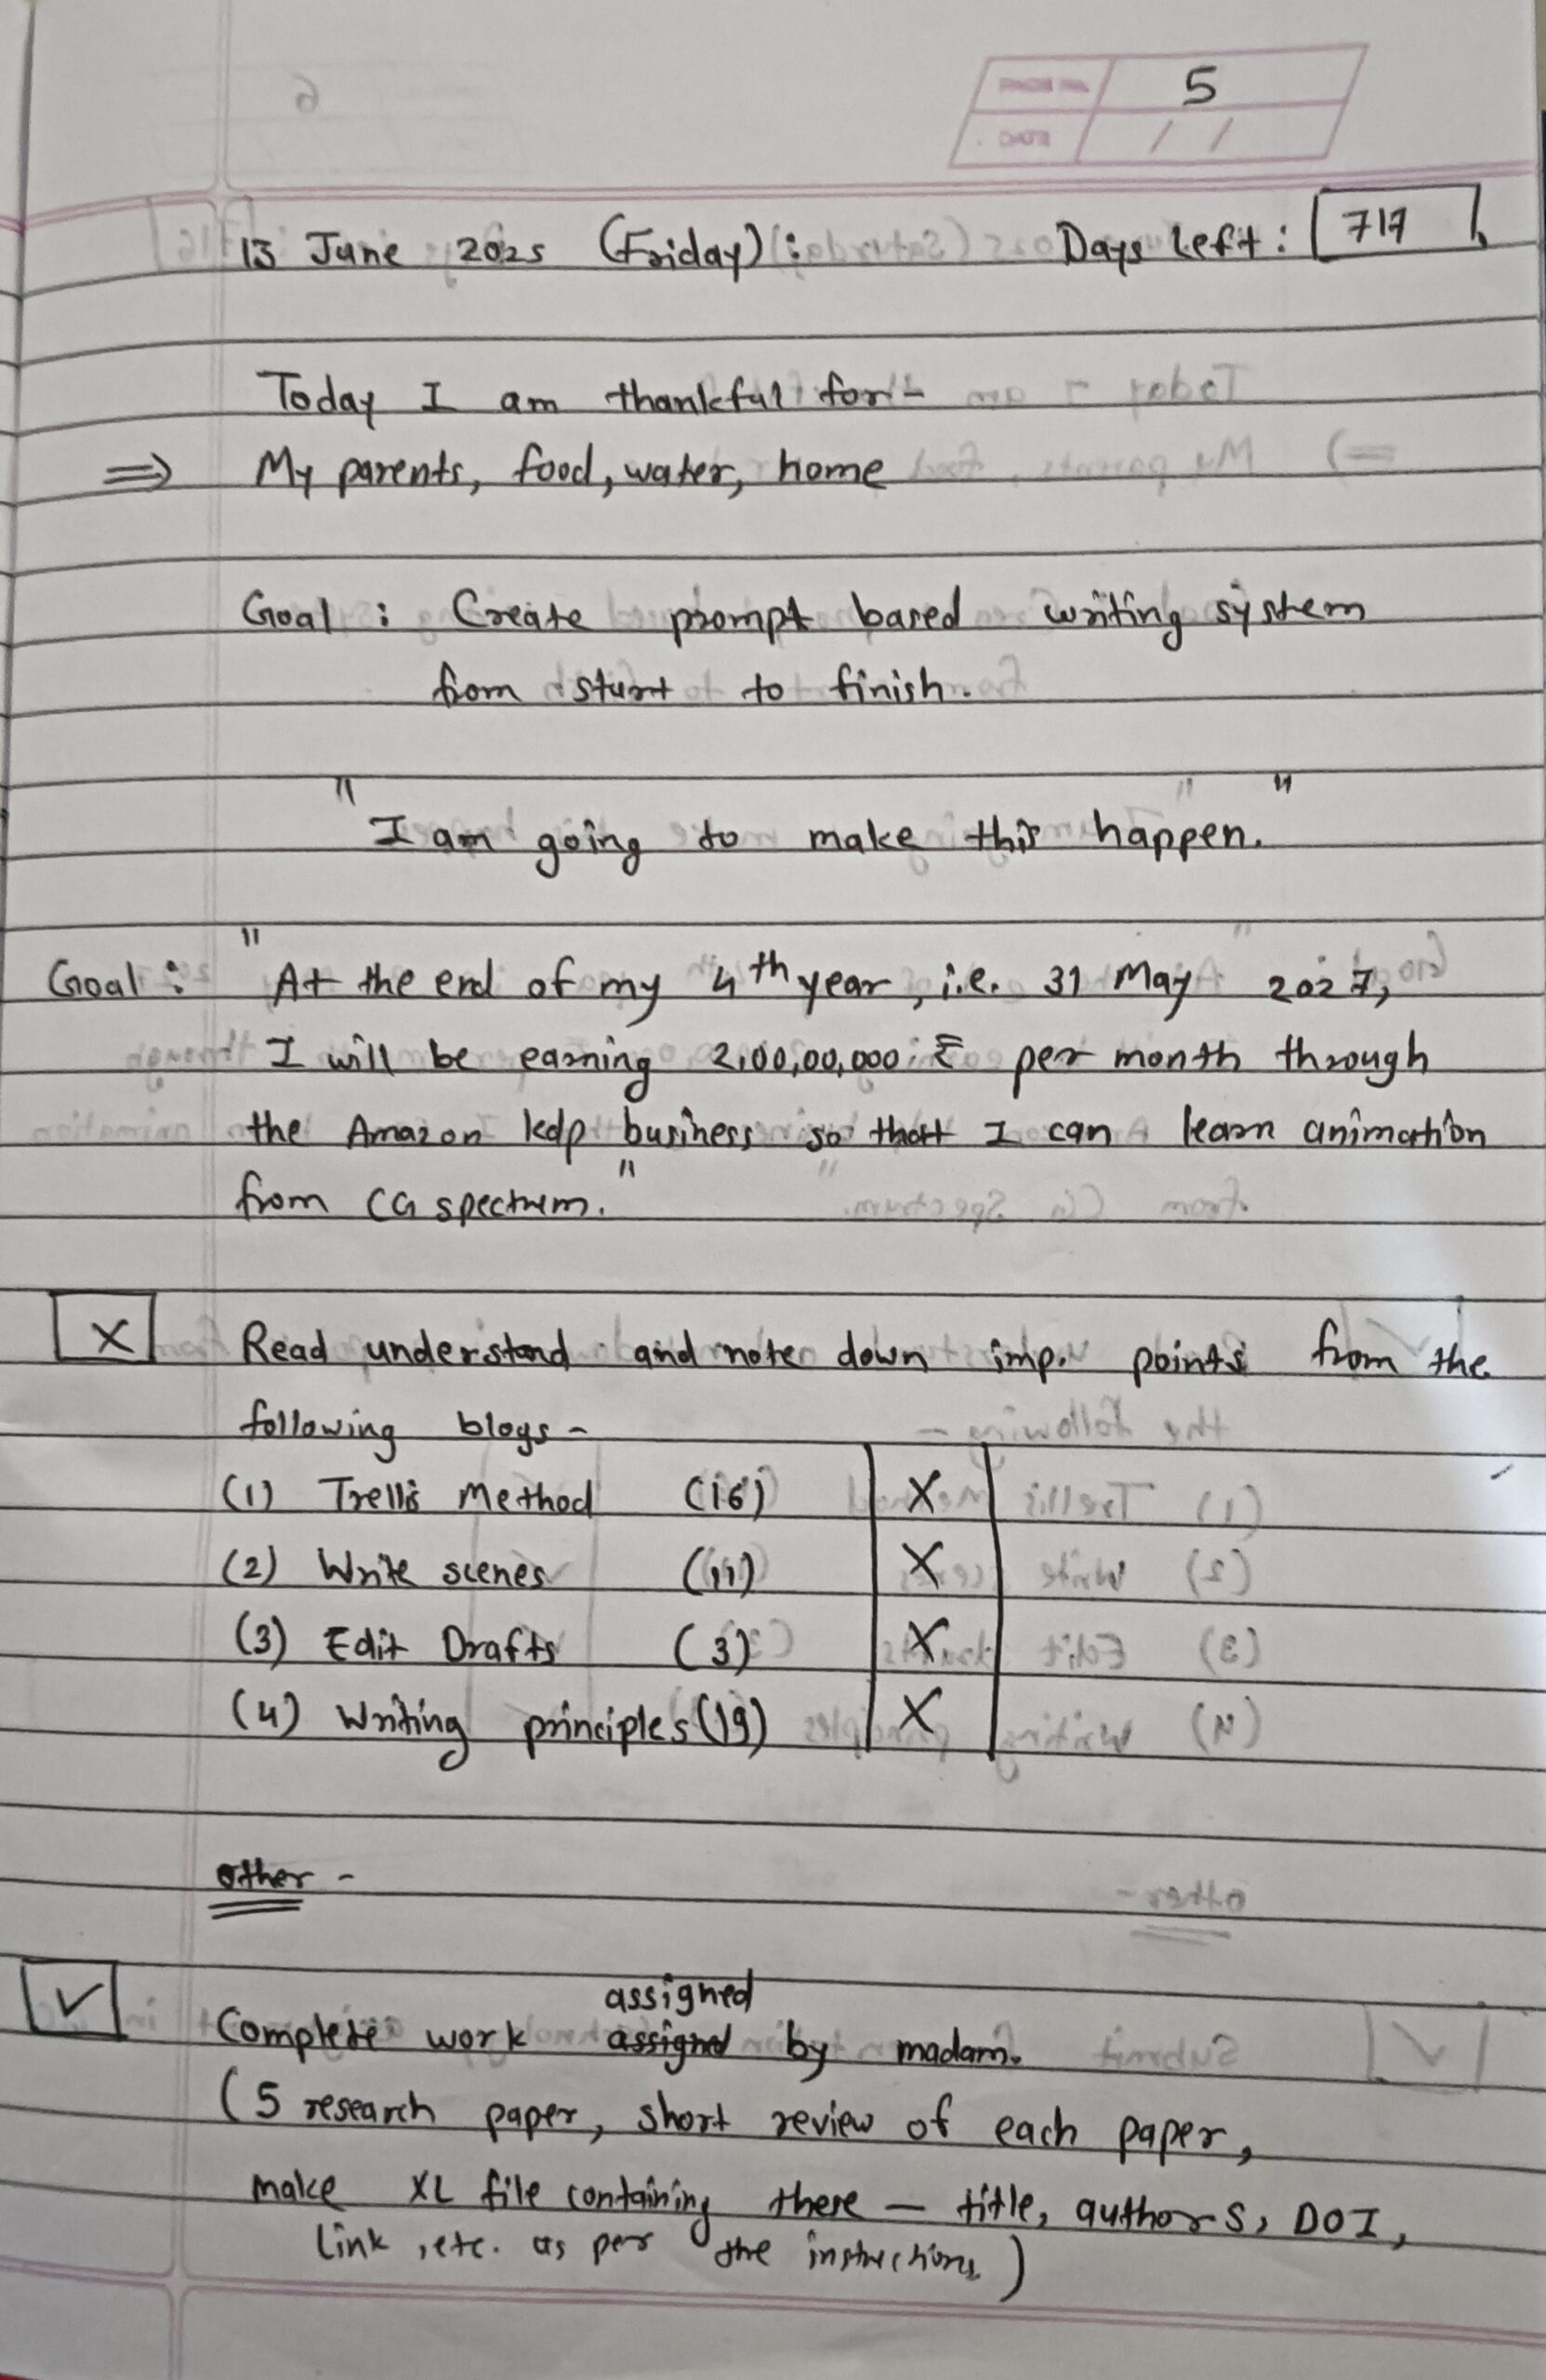 5
13 June 2025 (Friday): Days Left: 717
Today I am thankful for-
⇒ My parents, food, water, home
Goal : Create prompt based writing system
from start to finish.
"I am going to make this happen."
Goal : "At the end of my 4th year, i.e. 31 May 2027,
I will be earning 2,00,00,000 ₹ per month through
the Amazon kdp business so that I can learn animation
from CG spectrum."
X Read understand and note down imp. points from the
following blogs-
(1) Trellis Method (16) X
(2) Write scenes (11) X
(3) Edit Drafts (3) X
(4) Writing principles (19) X
other -
assigned
✓ Complete work assigned by madam.
(5 research paper, short review of each paper,
make XL file containing these — title, authors, DOI,
link, etc. as per the instructions)